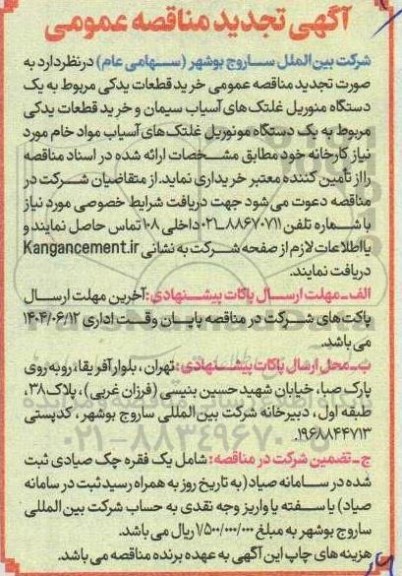 آگهی تجدید مناقصه عمومی
شرکت بین الملل ساروج بوشهر (سهامی عام) درنظردارد به
صورت تجدید مناقصه عمومی خرید قطعات یدکی مربوط به یک
دستگاه منوریل غلتک‌های آسیاب سیمان و خرید قطعات یدکی
مربوط به یک دستگاه مونوریل غلتک‌های آسیاب مواد خام مورد
نیاز کارخانه خود مطابق مشخصات ارائه شده در اسناد مناقصه
را از تأمین کننده معتبر خریداری نماید. از متقاضیان شرکت در
مناقصه دعوت می‌شود جهت دریافت شرایط خصوصی مورد نیاز
با شماره تلفن ۸۸۶۷۰۷۱۱-۰۲۱ داخلی ۱۰۸ تماس حاصل نمایند و
یا اطلاعات لازم از صفحه شرکت به نشانی Kangancement.ir
دریافت نمایند.
الف-مهلت ارسال پاکات پیشنهادی: آخرین مهلت ارسال
پاکت‌های شرکت در مناقصه پایان وقت اداری ۱۴۰۴/۰۶/۱۲
می‌باشد.
ب-محل ارسال پاکات پیشنهادی: تهران، بلوار آفریقا، روبه روی
پارک صبا، خیابان شهید حسین بنیسی (فرزان غربی)، پلاک۳۸،
طبقه اول، دبیرخانه شرکت بین المللی ساروج بوشهر، کدپستی
۱۹۶۸۸۴۴۷۱۳.
۰۲۱-۸۸۳۴۹۶۷۰
ج-تضمین شرکت در مناقصه: شامل یک فقره چک صیادی ثبت
شده در سامانه صیاد (به تاریخ روز به همراه رسید ثبت در سامانه
صیاد) یا سفته یا واریز وجه نقدی به حساب شرکت بین المللی
ساروج بوشهر به مبلغ ۷۵۰۰/۰۰۰/۰۰۰ ریال می‌باشد.
هزینه های چاپ این آگهی به عهده برنده مناقصه می‌باشد.